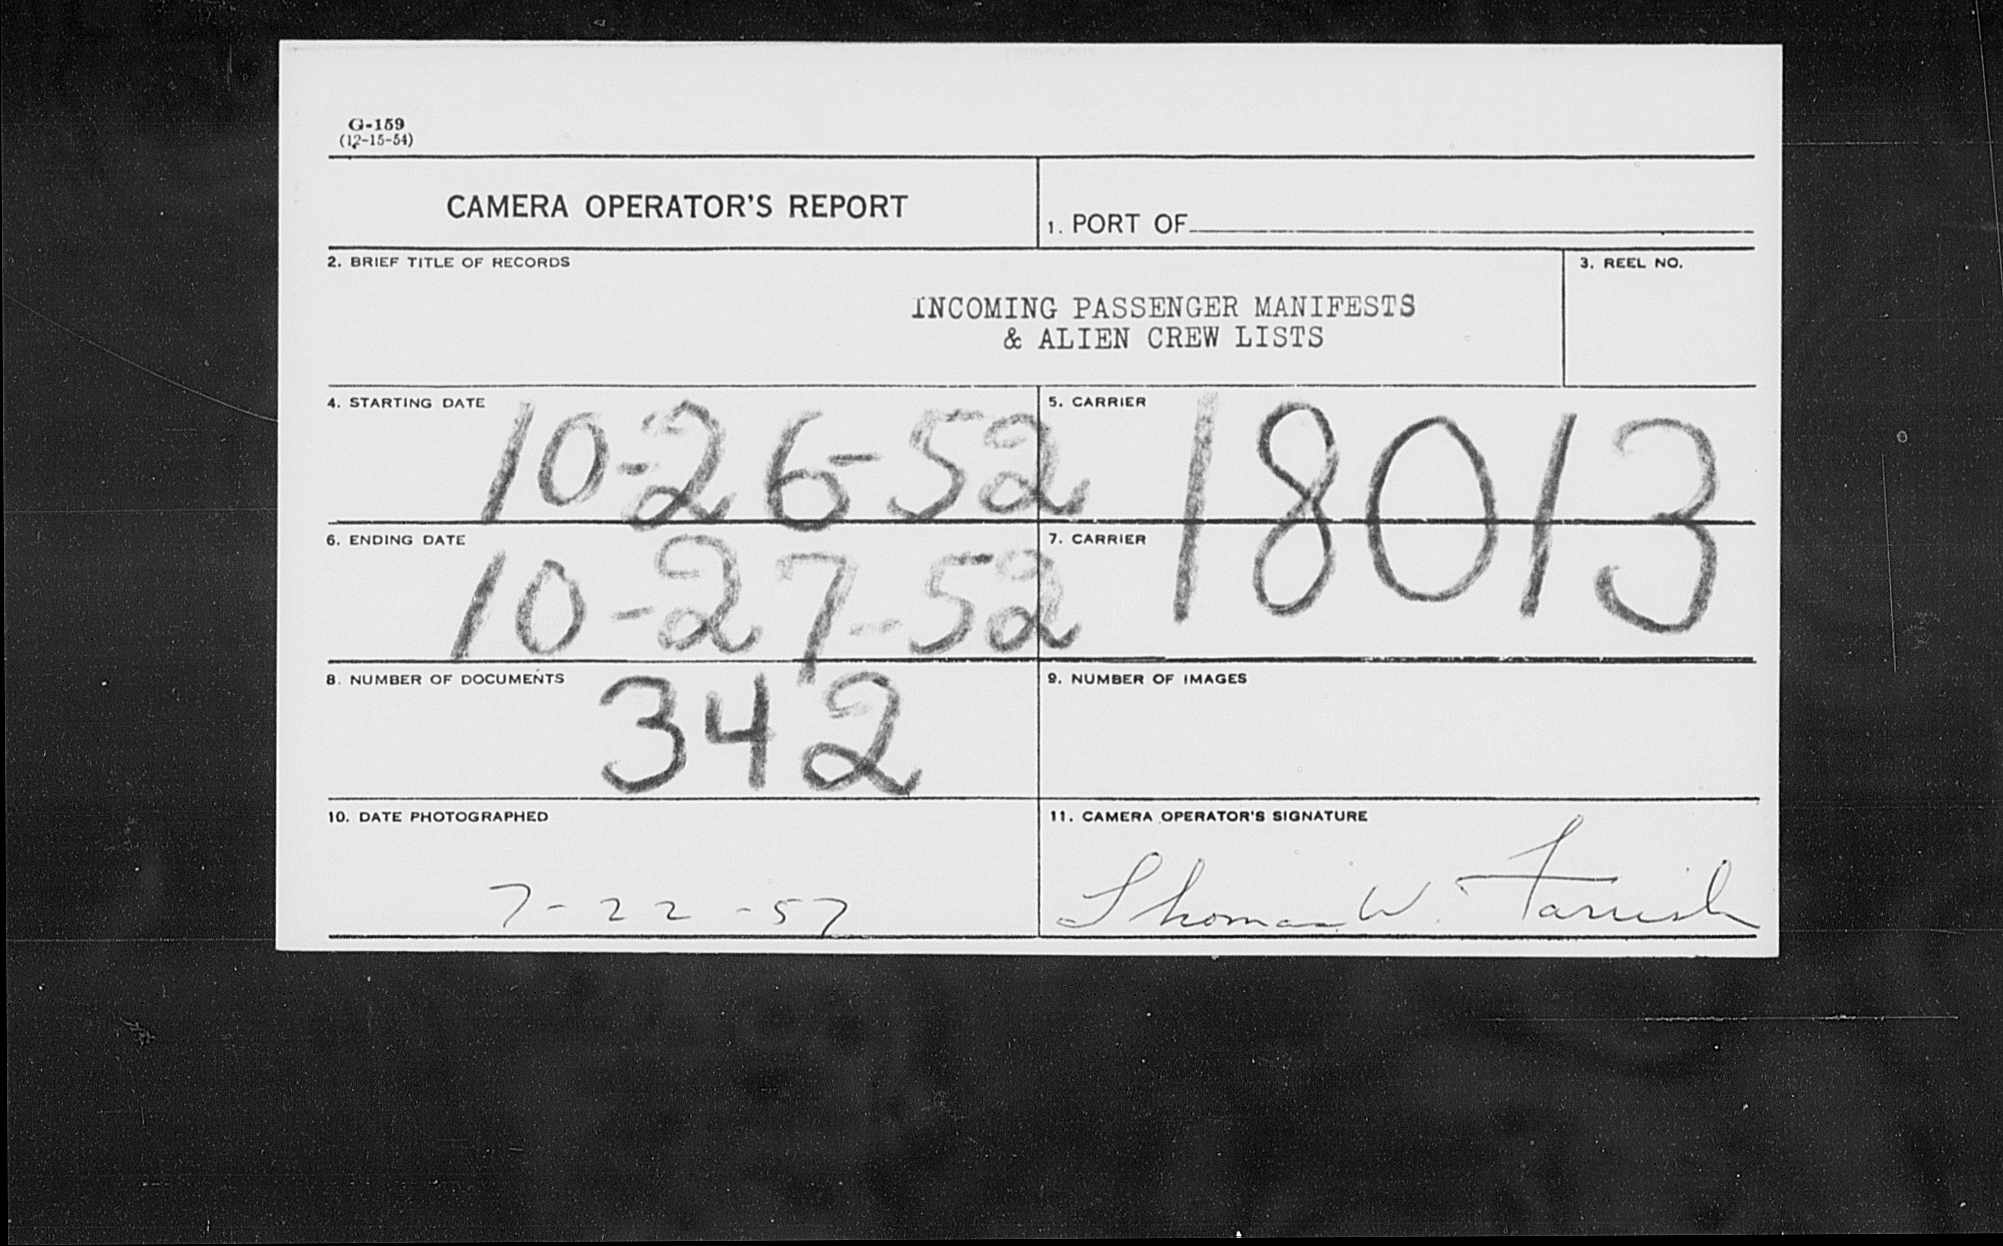 G-159
(12-15-54)
CAMERA OPERATOR'S REPORT
1. PORT OF
2. BRIEF TITLE OF RECORDS
3. REEL NO.
INCOMING PASSENGER MANIFESTS
& ALIEN CREW LISTS
4. STARTING DATE
10-26-52
5. CARRIER
18013
6. ENDING DATE
10-27-52
7. CARRIER
8. NUMBER OF DOCUMENTS
342
9. NUMBER OF IMAGES
10. DATE PHOTOGRAPHED
7-22-57
11. CAMERA OPERATOR'S SIGNATURE
Thomas W. Farrish